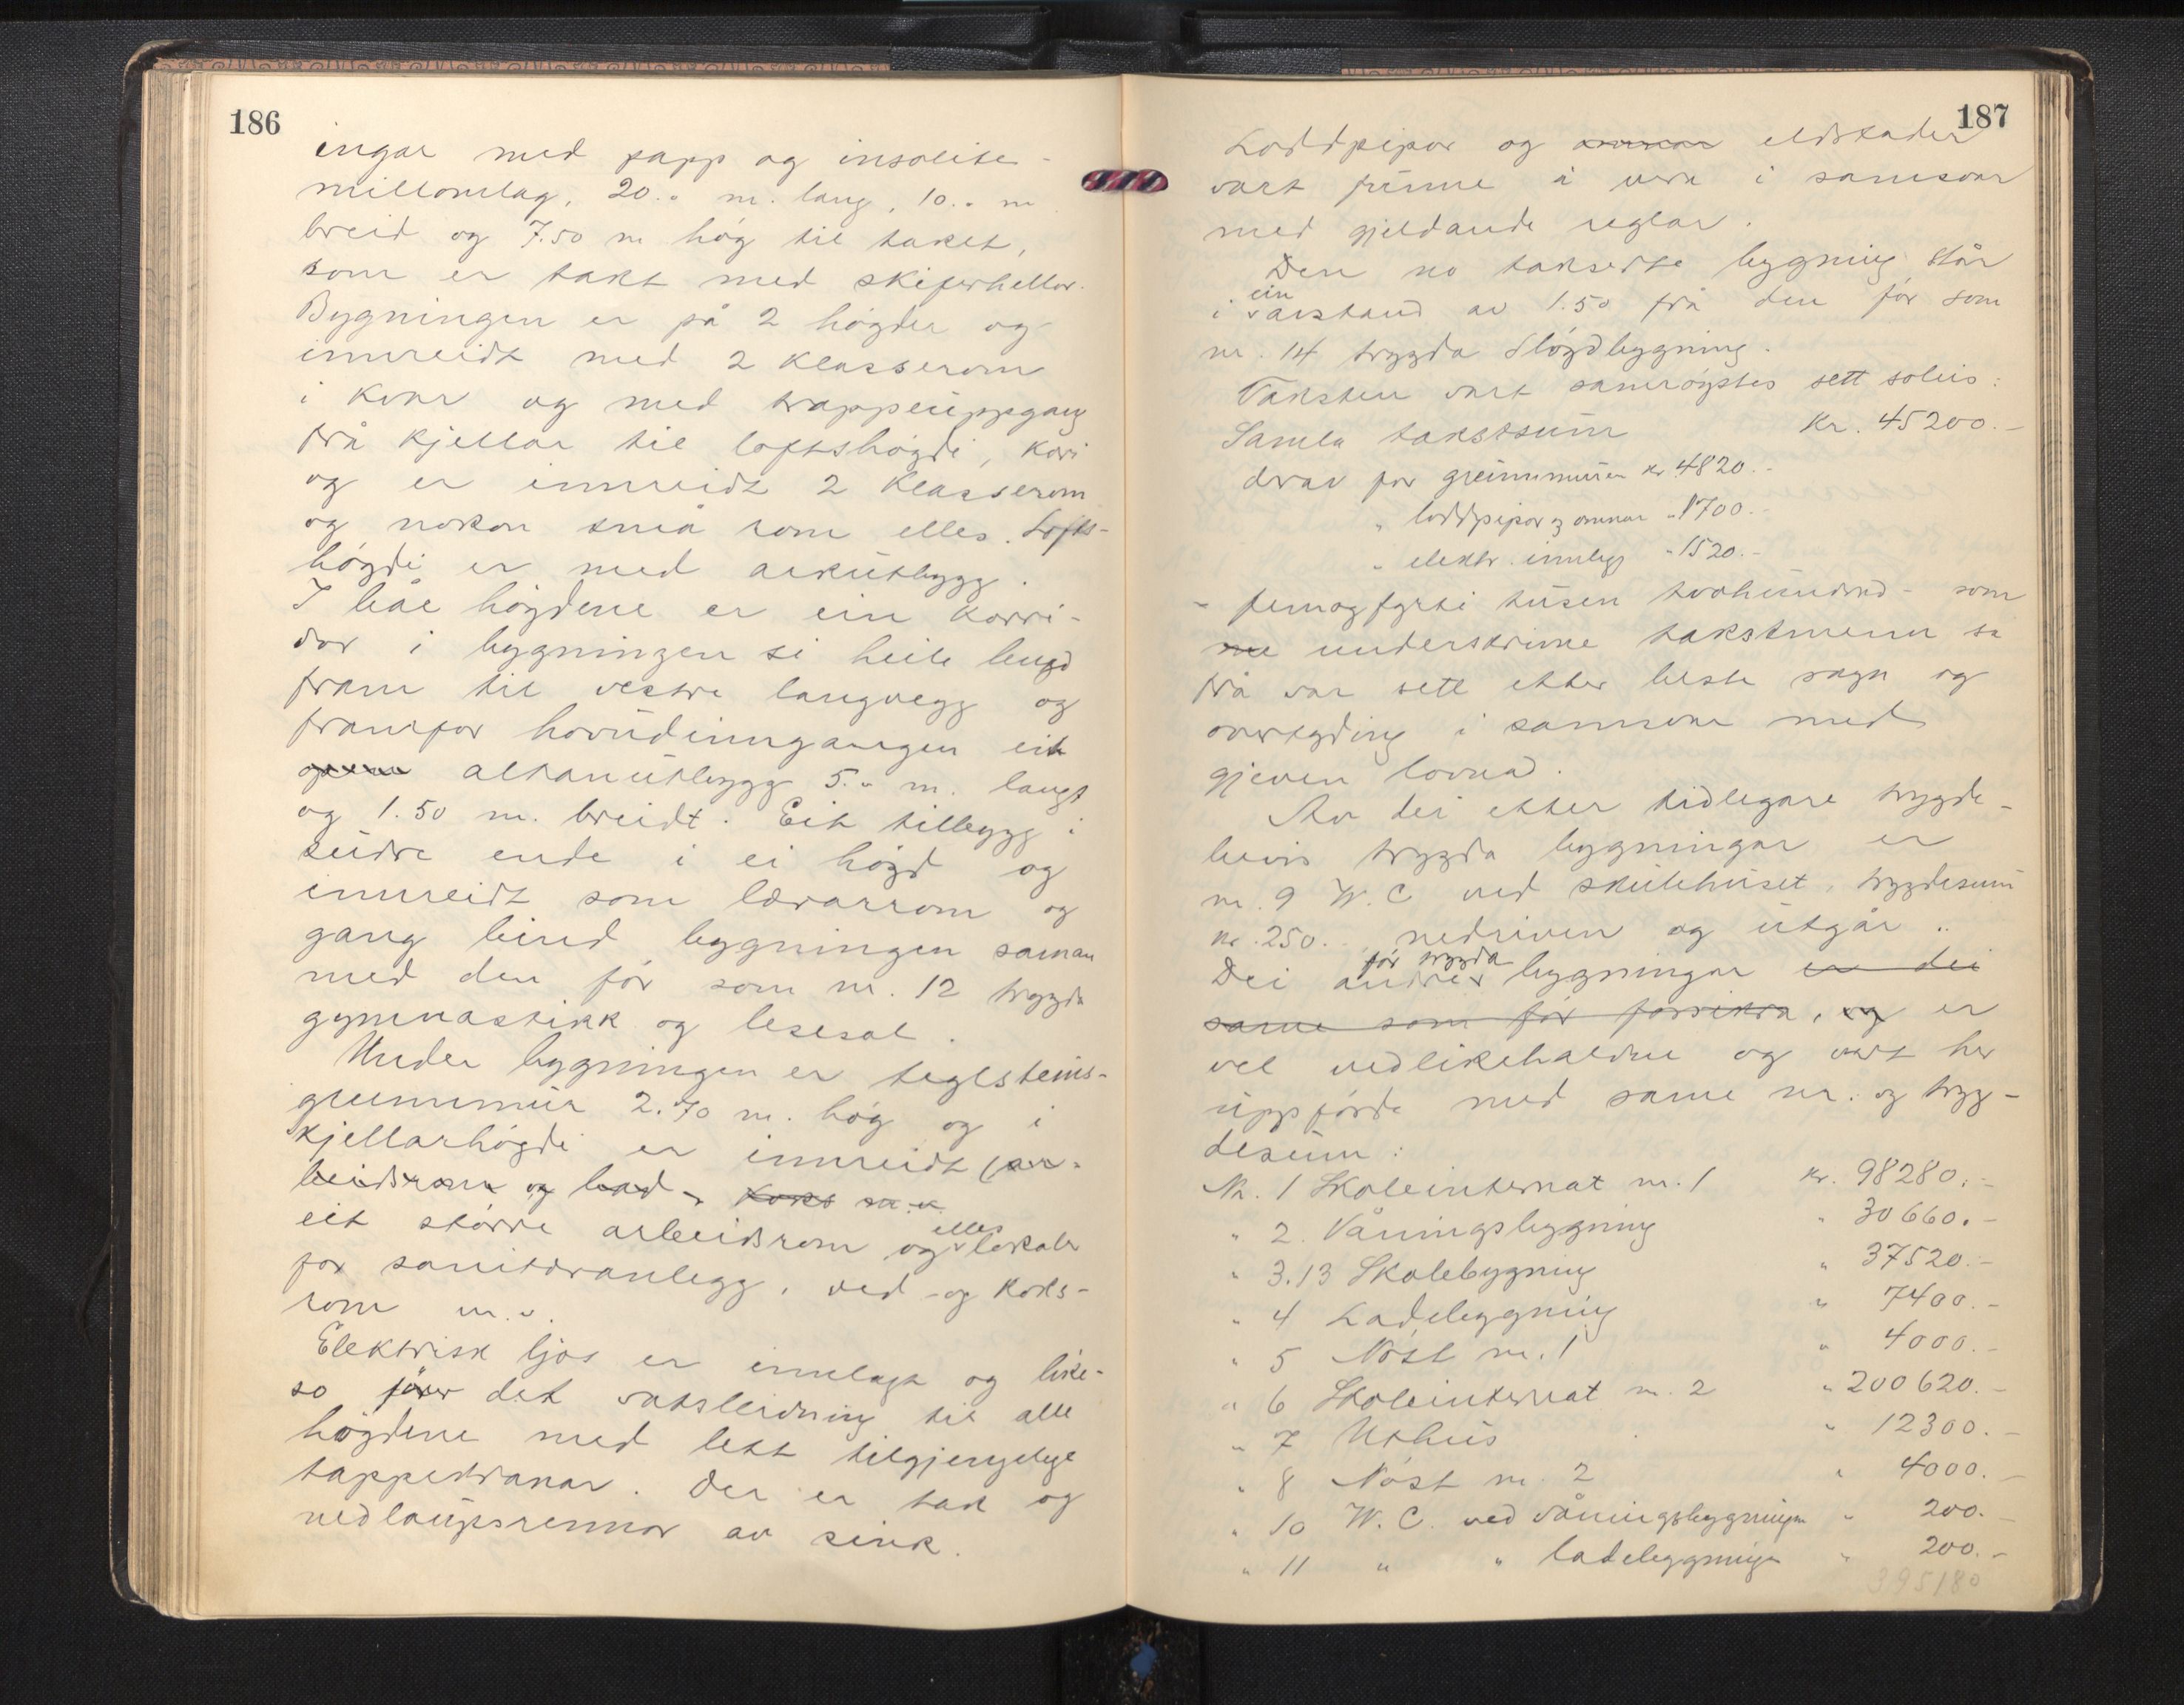 186
ingar med papp og insolite-
millomlag, 20.0 m. lang, 10.0 m
breid og 7.50 m høg til taket,
som er takt med skiferhellor.
Bygningen er på 2 høgder og
innreidt med 2 klasserom
i kvar og med trappeuppgang
frå kjellar til loftshøgdi, kori
og er innreidt 2 klasserom
og nokon små rom elles. Lofts-
høgdi er med arkutbygg.
I båe høgdene er ein korri-
dor i bygningen si heile lengd
fram til vestre langvegg og
framfor hovudinngangen eit
altanutbygg 5.0 m. langt
og 1.50 m. breidt. Eit tilbygg i
sudre ende i ei høgd og
innreidt som lærarrom og
gang bind bygningen saman
med den før som nr. 12 trygda
gymnastikk og lesesal.
Under bygningen er teglsteins-
grunnmur 2.70 m. høg og i
kjellarhøgdi er innreidt (ar-
beidsrom og bad - koks m.v.
eit større arbeidsrom og elles lokale
for sanitæranlegg, ved- og koks-
rom m.v.
Elektrisk ljos er innlagt og like-
so fører det vatsleidning til alle
høgdene med lett tilgjengelege
tappekranar. Der er tak og
nedlaupsrennor av sink.
187
Loddpipor og omnar eldstader
vart funne å vera i samsvar
med gjeldande reglar.
Den no takserte bygning står
i ein avstand av 1.50 frå den før som
nr. 14 trygda Sløydbygning.
Taksten vart samrøystes sett soleis:
Samla takstsum Kr. 45200.-
drav for grunnmuren kr. 4820.-
" loddpipor og omnar " 1700.-
" elektr. innlegg " 1520.-
- femogfyrti tusen tvohundrad - som
me underskrivne takstmenn sa
frå var sett etter beste skyn og
overtyding i samsvar med
gjeven lovnad.
Av dei etter tidlegare trygde-
bevis trygda bygningar er
nr. 9 W.C ved skulehuset, trygdesum
kr. 250.-, nedriven og utgår..
Dei andre før trygda bygningar er dei
same som før forsikra, og er
vel vedlikehaldne og vart her
uppførde med same nr. og tryg-
desum:
Nr. 1 Skoleinternat nr. 1 kr. 98280.-
" 2. Våningsbygning " 30660.-
" 3.13 Skolebygning " 37520.-
" 4 Ladebygning " 7400.-
" 5 Nøst nr. 1 " 4000.-
" 6 Skoleinternat nr. 2 " 200620.-
" 7 Uthus " 12300.-
" 8 Nøst nr. 2 " 4000.-
" 10 W.C. ved våningsbygningen " 200.-
" 11 " " ladebygningen " 200.-
395180